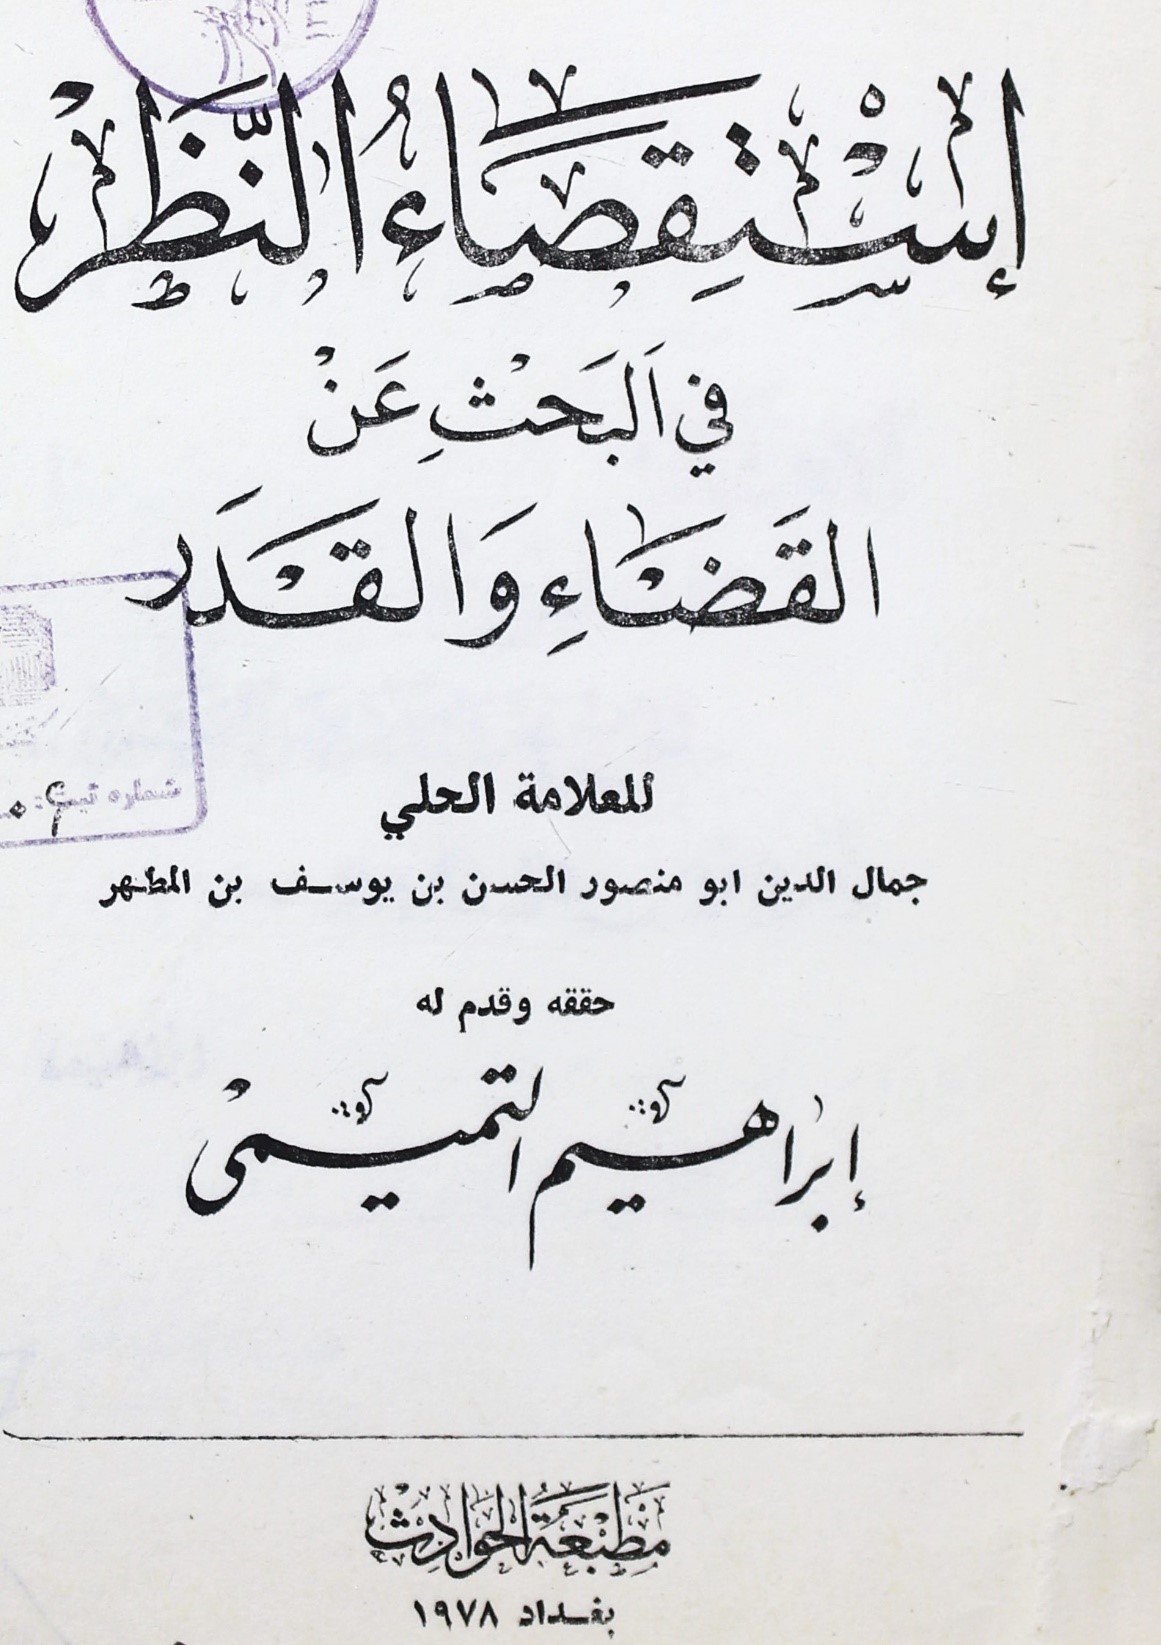 إِسْتِقِصَاءُ النَّظَرْ
في اَلبَحْثِ عَنْ
القَضَاءِ وَالقَدَر
للعلامة الحلي
جمال الدين ابو منصور الحسن بن يوسف بن المطهر
حققه وقدم له
إبراهيم التميمى
شماره ثبت:
مَطْبَعَةُ الحَوَادِث
بغداد ١٩٧٨